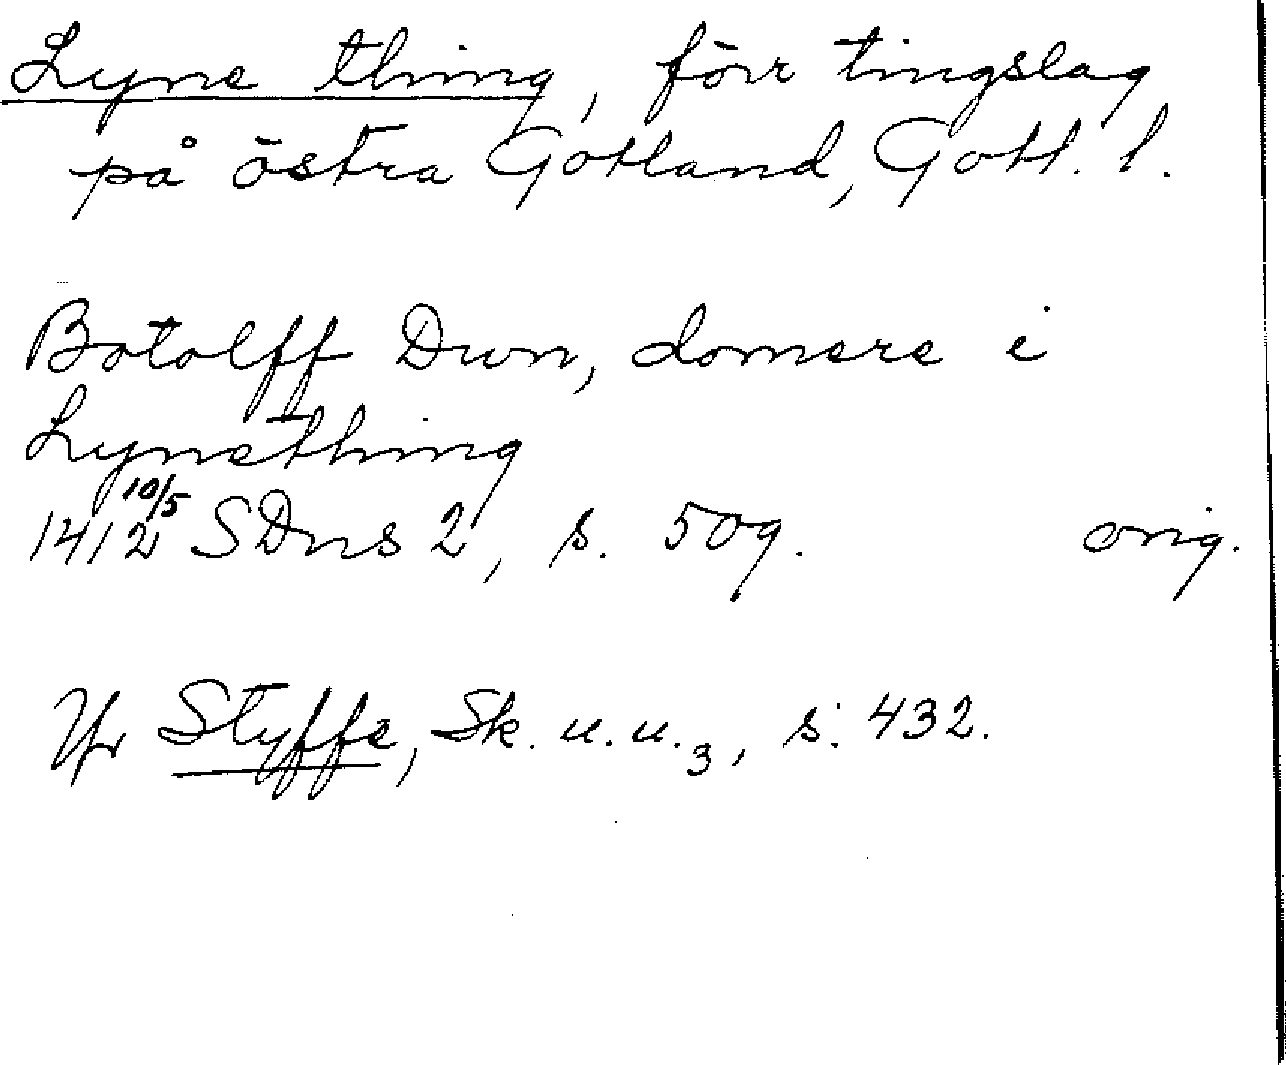 Lyne thing, förr tingslag
på östra Gotland, Gotl. l.
Botolff Dwn, domere i
Lynething
1412 10/5 SDns 2, s. 509. orig.
Jfr Styffe, Sk. u. u. 3, s. 432.